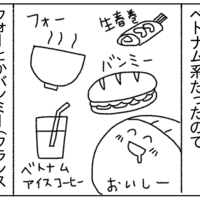 ベトナム系だったので
生春巻
フォー
バンミー
ベトナム
アイスコーヒー
おいしー
フォーとかバンミー(フランス